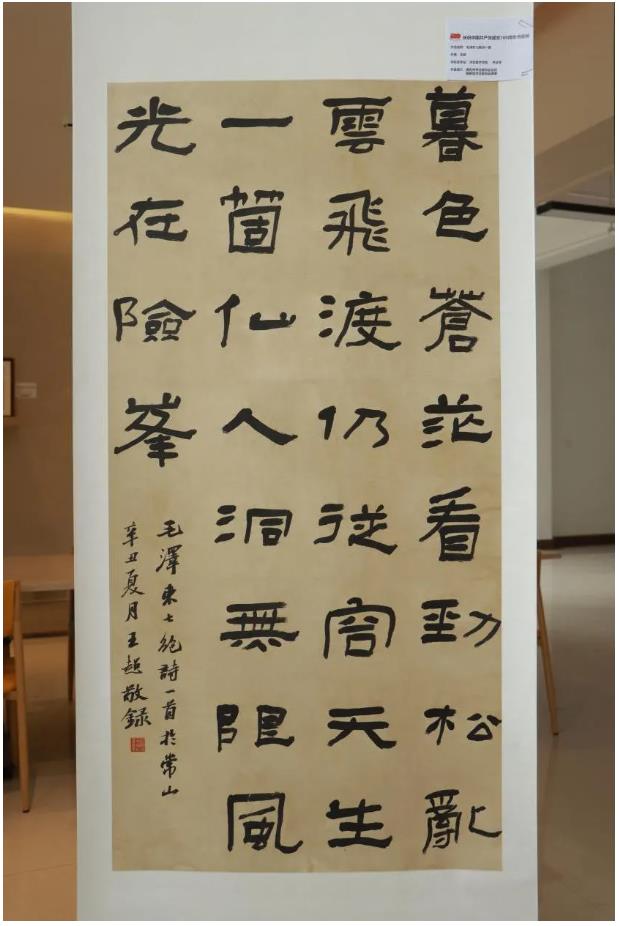 暮色蒼茫看勁松亂
雲飛渡仍從容天生
一箇仙人洞無限風
光在險峯
毛澤東七絕詩一首於常山
辛丑夏月王超敬録